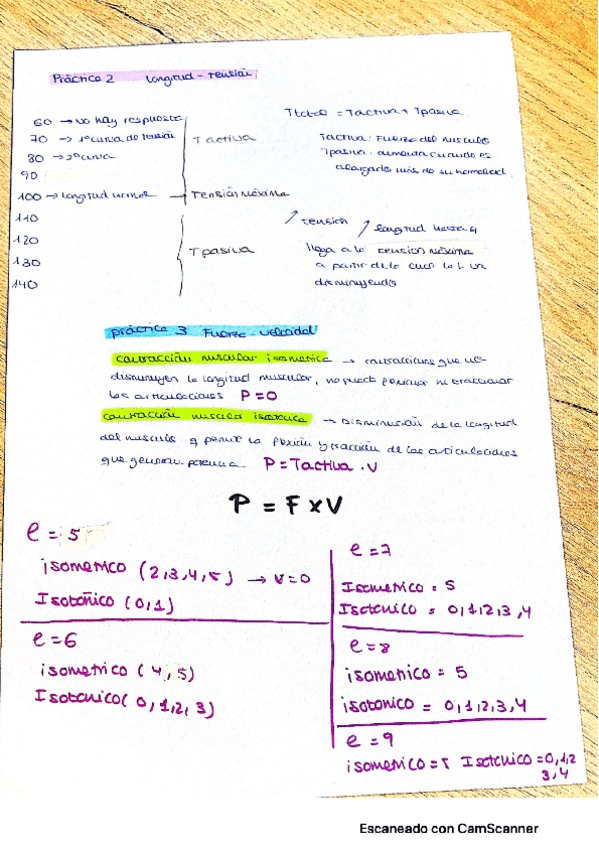 Práctica 2 Longitud - Tensión
60 → no hay respuesta
70 → 1ª curva de tensión
80 → 2ª curva
90
T activa
100 → longitud normal → Tensión Máxima
110
120
130
140
T pasiva
Ttotal = Tactiva + Tpasiva
Tactiva: Fuerza del musculo
Tpasiva: aumenta cuando es
alargado más de su normalidad.
↑ tensión ↑ longitud hasta q
llega a la tensión máxima
a partir de la cual la t. va
disminuyendo
práctica 3 Fuerza - velocidad
contracción muscular isometrica → contracciones que no
disminuyen la longitud muscular, no puede
las articulaciones P=0
contracción muscular isotonica → Disminución de la longitud
del musculo q permite la flexión y tracción de las articulaciones
que generan potencia P = Tactiva · V
P = F x V
e = 5
isometrico (2,3,4,5) → v=0
Isotónico (0,1)
e = 6
isometrico (4,5)
Isotonico (0,1,2,3)
e = 7
Isometrico = 5
Isotonico = 0,1,2,3,4
e = 8
isometrico = 5
isotonico = 0,1,2,3,4
e = 9
isometrico = 5 Isotonico = 0,1,2
3,4
Escaneado con CamScanner